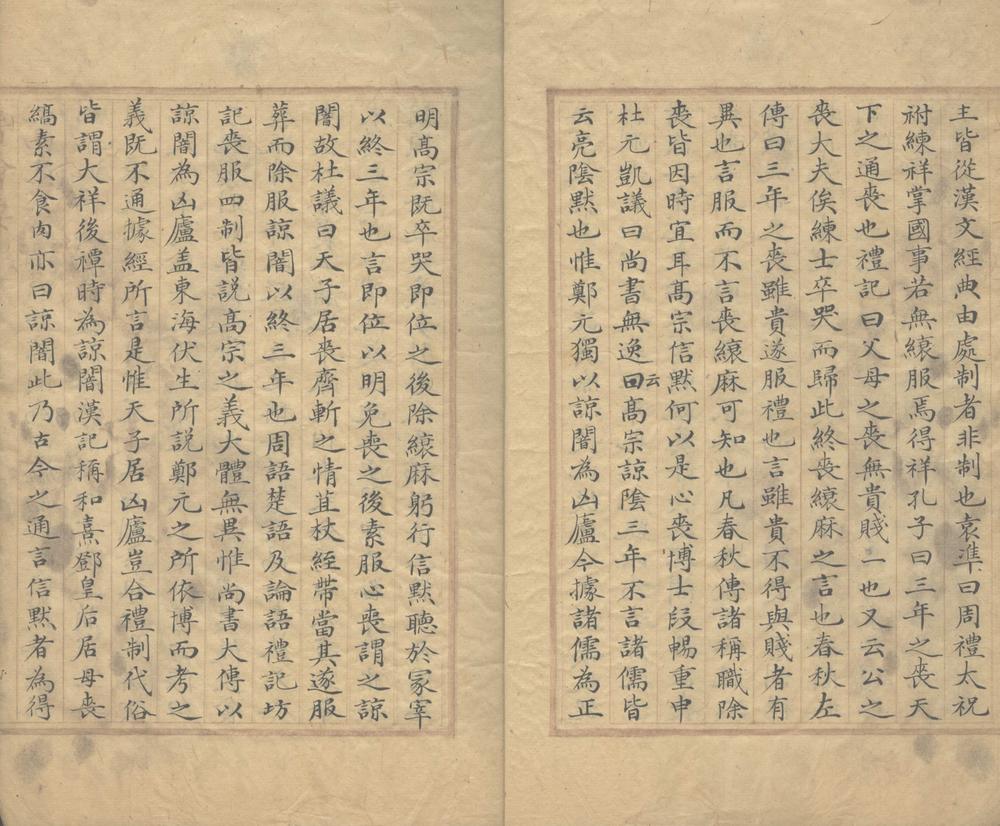 主皆從漢文經典由處制者非制也袁準曰周禮太祝
祔練祥掌國事若無縗服焉得祥孔子曰三年之喪天
下之通喪也禮記曰父母之喪無貴賤一也又云公之
喪大夫俟練士卒哭而歸此終喪縗麻之言也春秋左
傳曰三年之喪雖貴遂服禮也言雖貴不得與賤者有
異也言服而不言喪縗麻可知也凡春秋傳諸稱職除
喪皆因時宜耳高宗信默何以是心喪博士段暢重申
杜元凱議曰尚書無逸曰云高宗諒陰三年不言諸儒皆
云亮陰默也惟鄭元獨以諒闇為凶廬今據諸儒為正
明高宗既卒哭即位之後除縗麻躬行信默聽於冢宰
以終三年也言即位以明免喪之後素服心喪謂之諒
闇故杜議曰天子居喪齊斬之情苴杖絰帶當其遂服
葬而除服諒闇以終三年也周語楚語及論語禮記坊
記喪服四制皆說高宗之義大體無異惟尚書大傳以
諒闇為凶廬盖東海伏生所說鄭元之所依博而考之
義既不通據經所言是惟天子居凶廬豈合禮制代俗
皆謂大祥後禫時為諒闇漢記稱和熹鄧皇后居母喪
縞素不食肉亦曰諒闇此乃古今之通言信默者為得